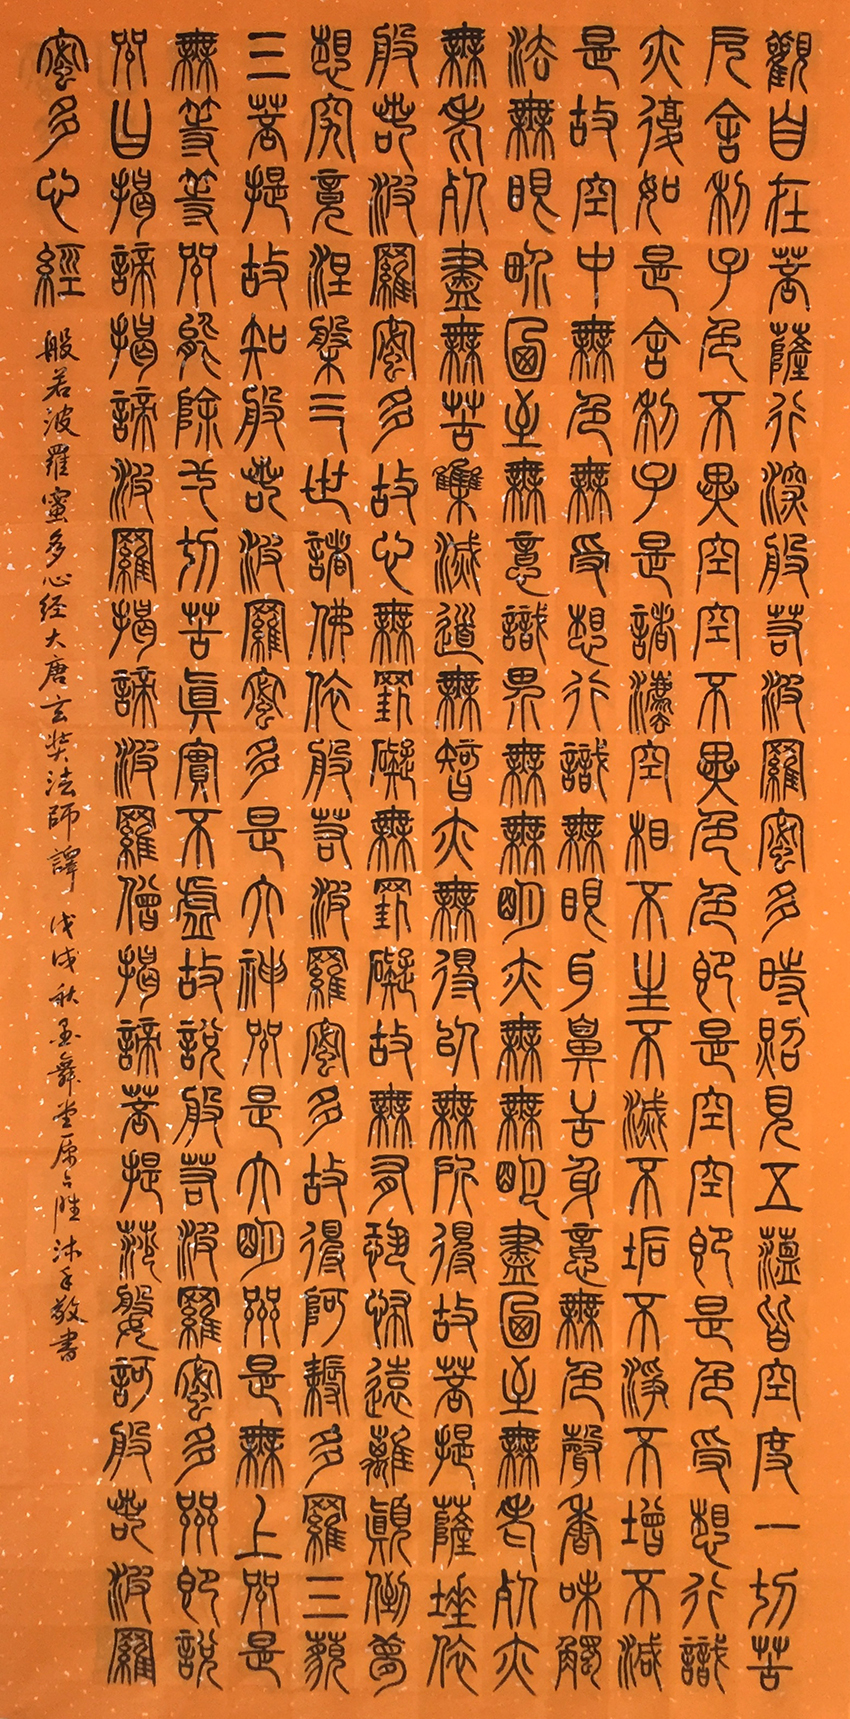 觀自在菩薩行深般若波羅蜜多時照見五蘊皆空度一切苦
厄舍利子色不異空空不異色色即是空空即是色受想行識
亦復如是舍利子是諸法空相不生不滅不垢不淨不增不減
是故空中無色無受想行識無眼耳鼻舌身意無色聲香味觸
法無眼界乃至無意識界無無明亦無無明盡乃至無老死亦
無老死盡無苦集滅道無智亦無得以無所得故菩提薩埵依
般若波羅蜜多故心無罣礙無罣礙故無有恐怖遠離顛倒夢
想究竟涅槃三世諸佛依般若波羅蜜多故得阿耨多羅三藐
三菩提故知般若波羅蜜多是大神咒是大明咒是無上咒是
無等等咒能除一切苦真實不虛故說般若波羅蜜多咒即說
咒曰揭諦揭諦波羅揭諦波羅僧揭諦菩提薩婆訶般若波羅
蜜多心經
般若波羅蜜多心经大唐玄奘法師譯 戊戌秋墨舞堂沐手敬書